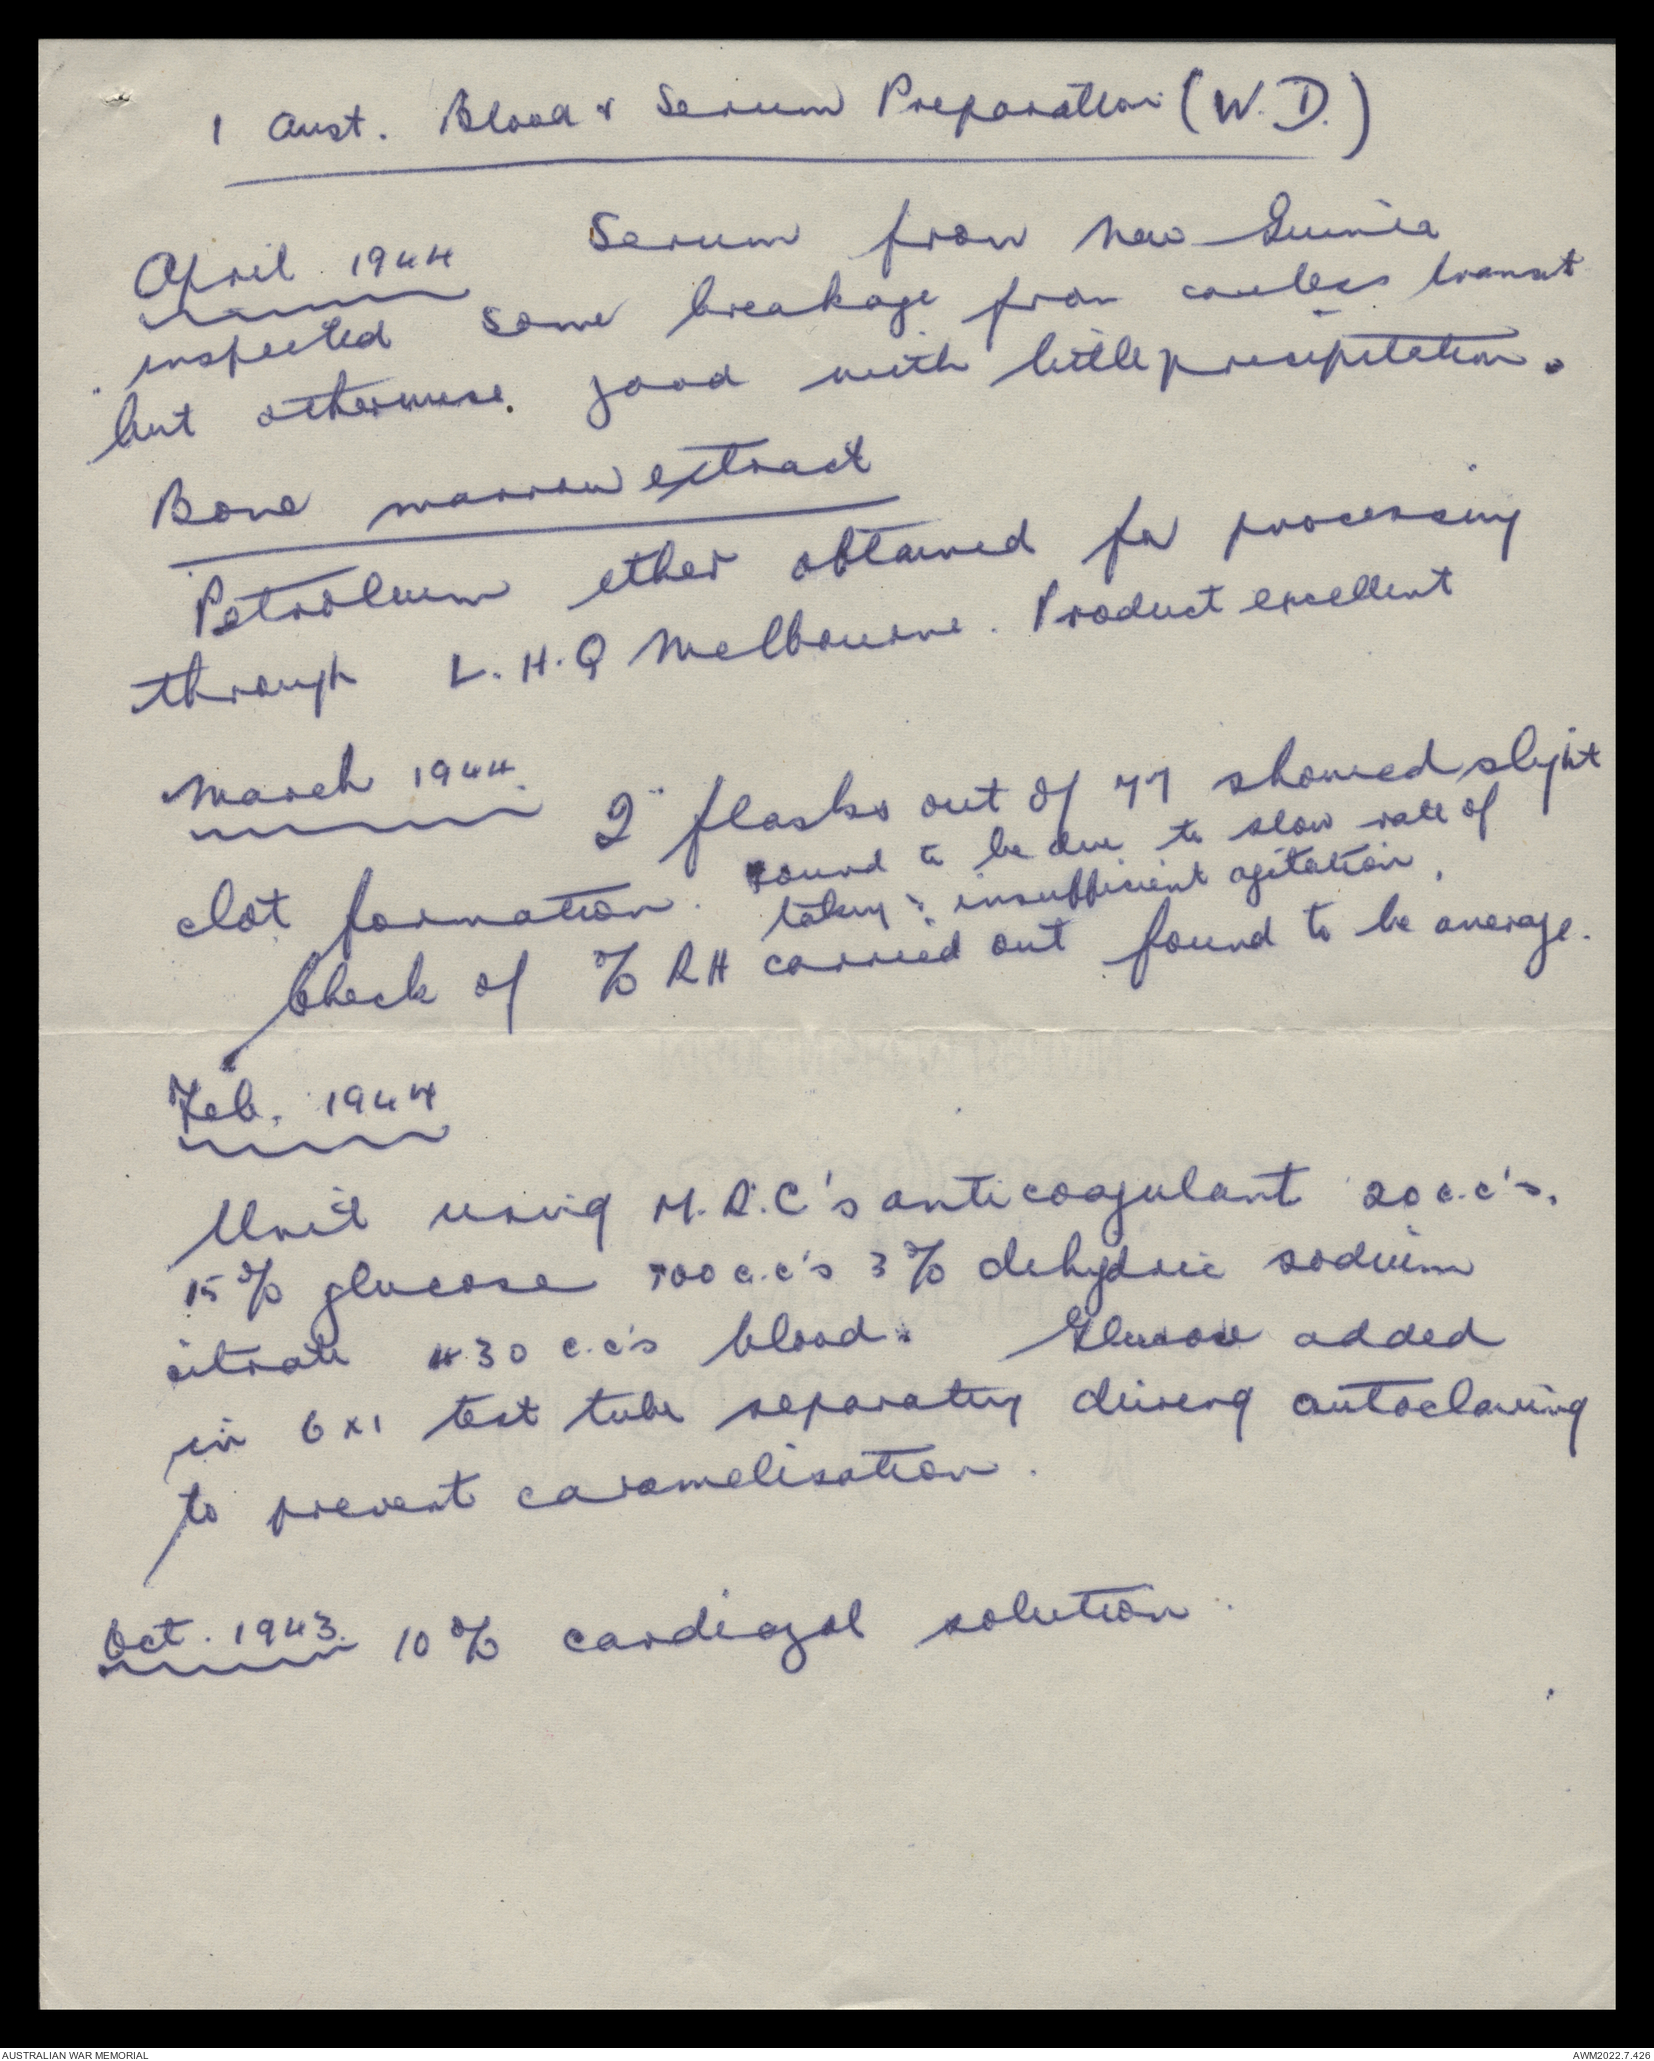 1 Aust. Blood & Serum Preparation (W.D.)
April 1944 Serum from New Guinea
inspected some breakage from careless transit
but otherwise good with little precipitation.
Bone marrow extract
Petroleum ether obtained for processing
through L.H.Q Melbourne. Product excellent
March 1944 2 flasks out of 77 showed slight
clot formation. Found to be due to slow rate of
taking & insufficient agitation.
Check of % RH carried out found to be average.
Feb. 1944
Unit using M.R.C's anticoagulant 20 c.c's.
15% glucose 100 c.c's 3% dehydric sodium
citrate 430 c.c's blood. Glucose added
in 6x1 test tube separately during autoclaving
to prevent caramelisation.
Oct. 1943. 10% cardiazol solution.
AUSTRALIAN WAR MEMORIAL
AWM2022.7.426